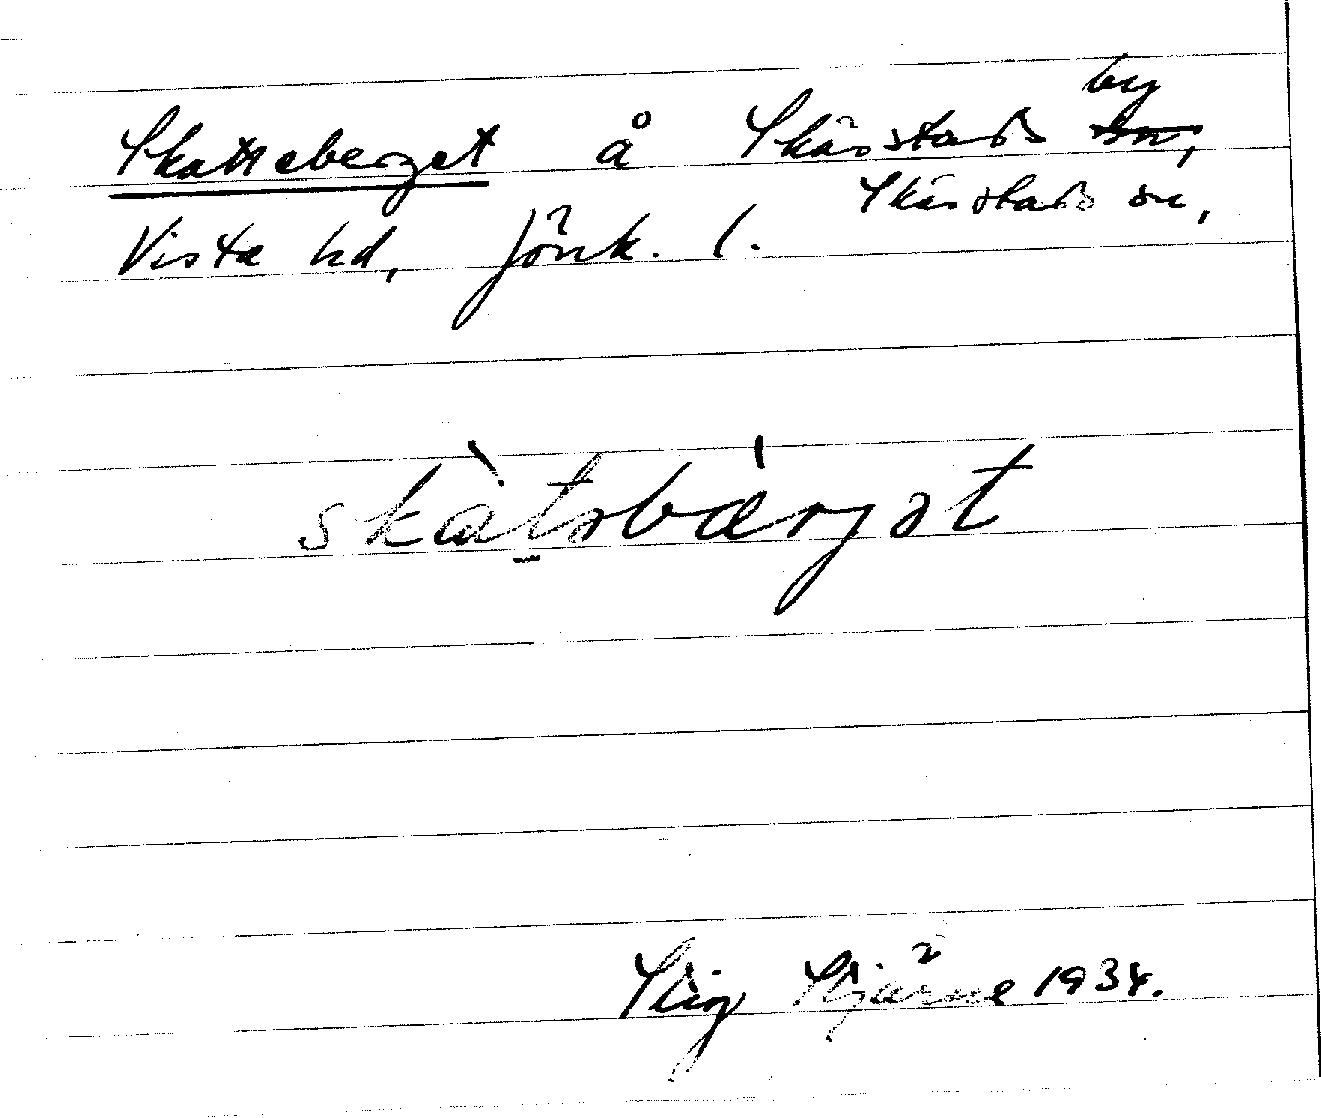 Skatteberget å Skärstads by,
Skärstads sn,
Vista hd, Jönk. l.
skàtəbærjət
Stig Stjärne 1934.